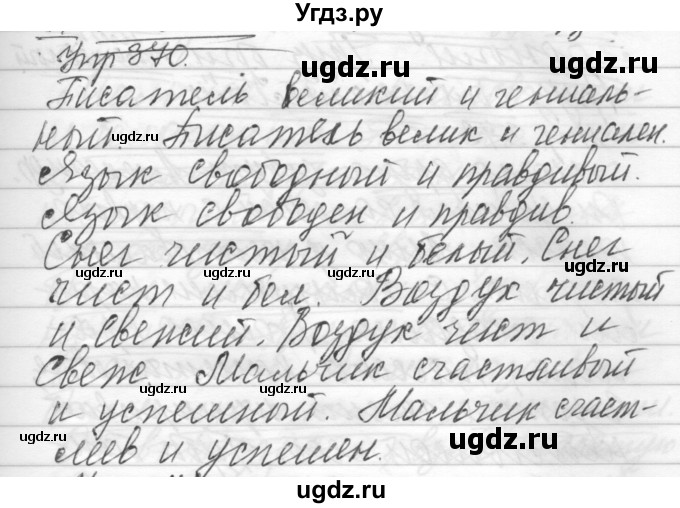 Угдз.ру
Упр 370.
Писатель великий и гениаль-
ный. Писатель велик и гениален.
Язык свободный и правдивый.
Язык свободен и правдив.
Снег чистый и белый. Снег
чист и бел. Воздух чистый
и свежий. Воздух чист и
свеж Мальчик счастливый
и успешный. Мальчик счаст-
лив и успешен.
ugdz.ru
ugdz.ru
ugdz.ru
ugdz.ru
ugdz.ru
ugdz.ru
ugdz.ru
ugdz.ru
ugdz.ru
ugdz.ru
ugdz.ru
ugdz.ru